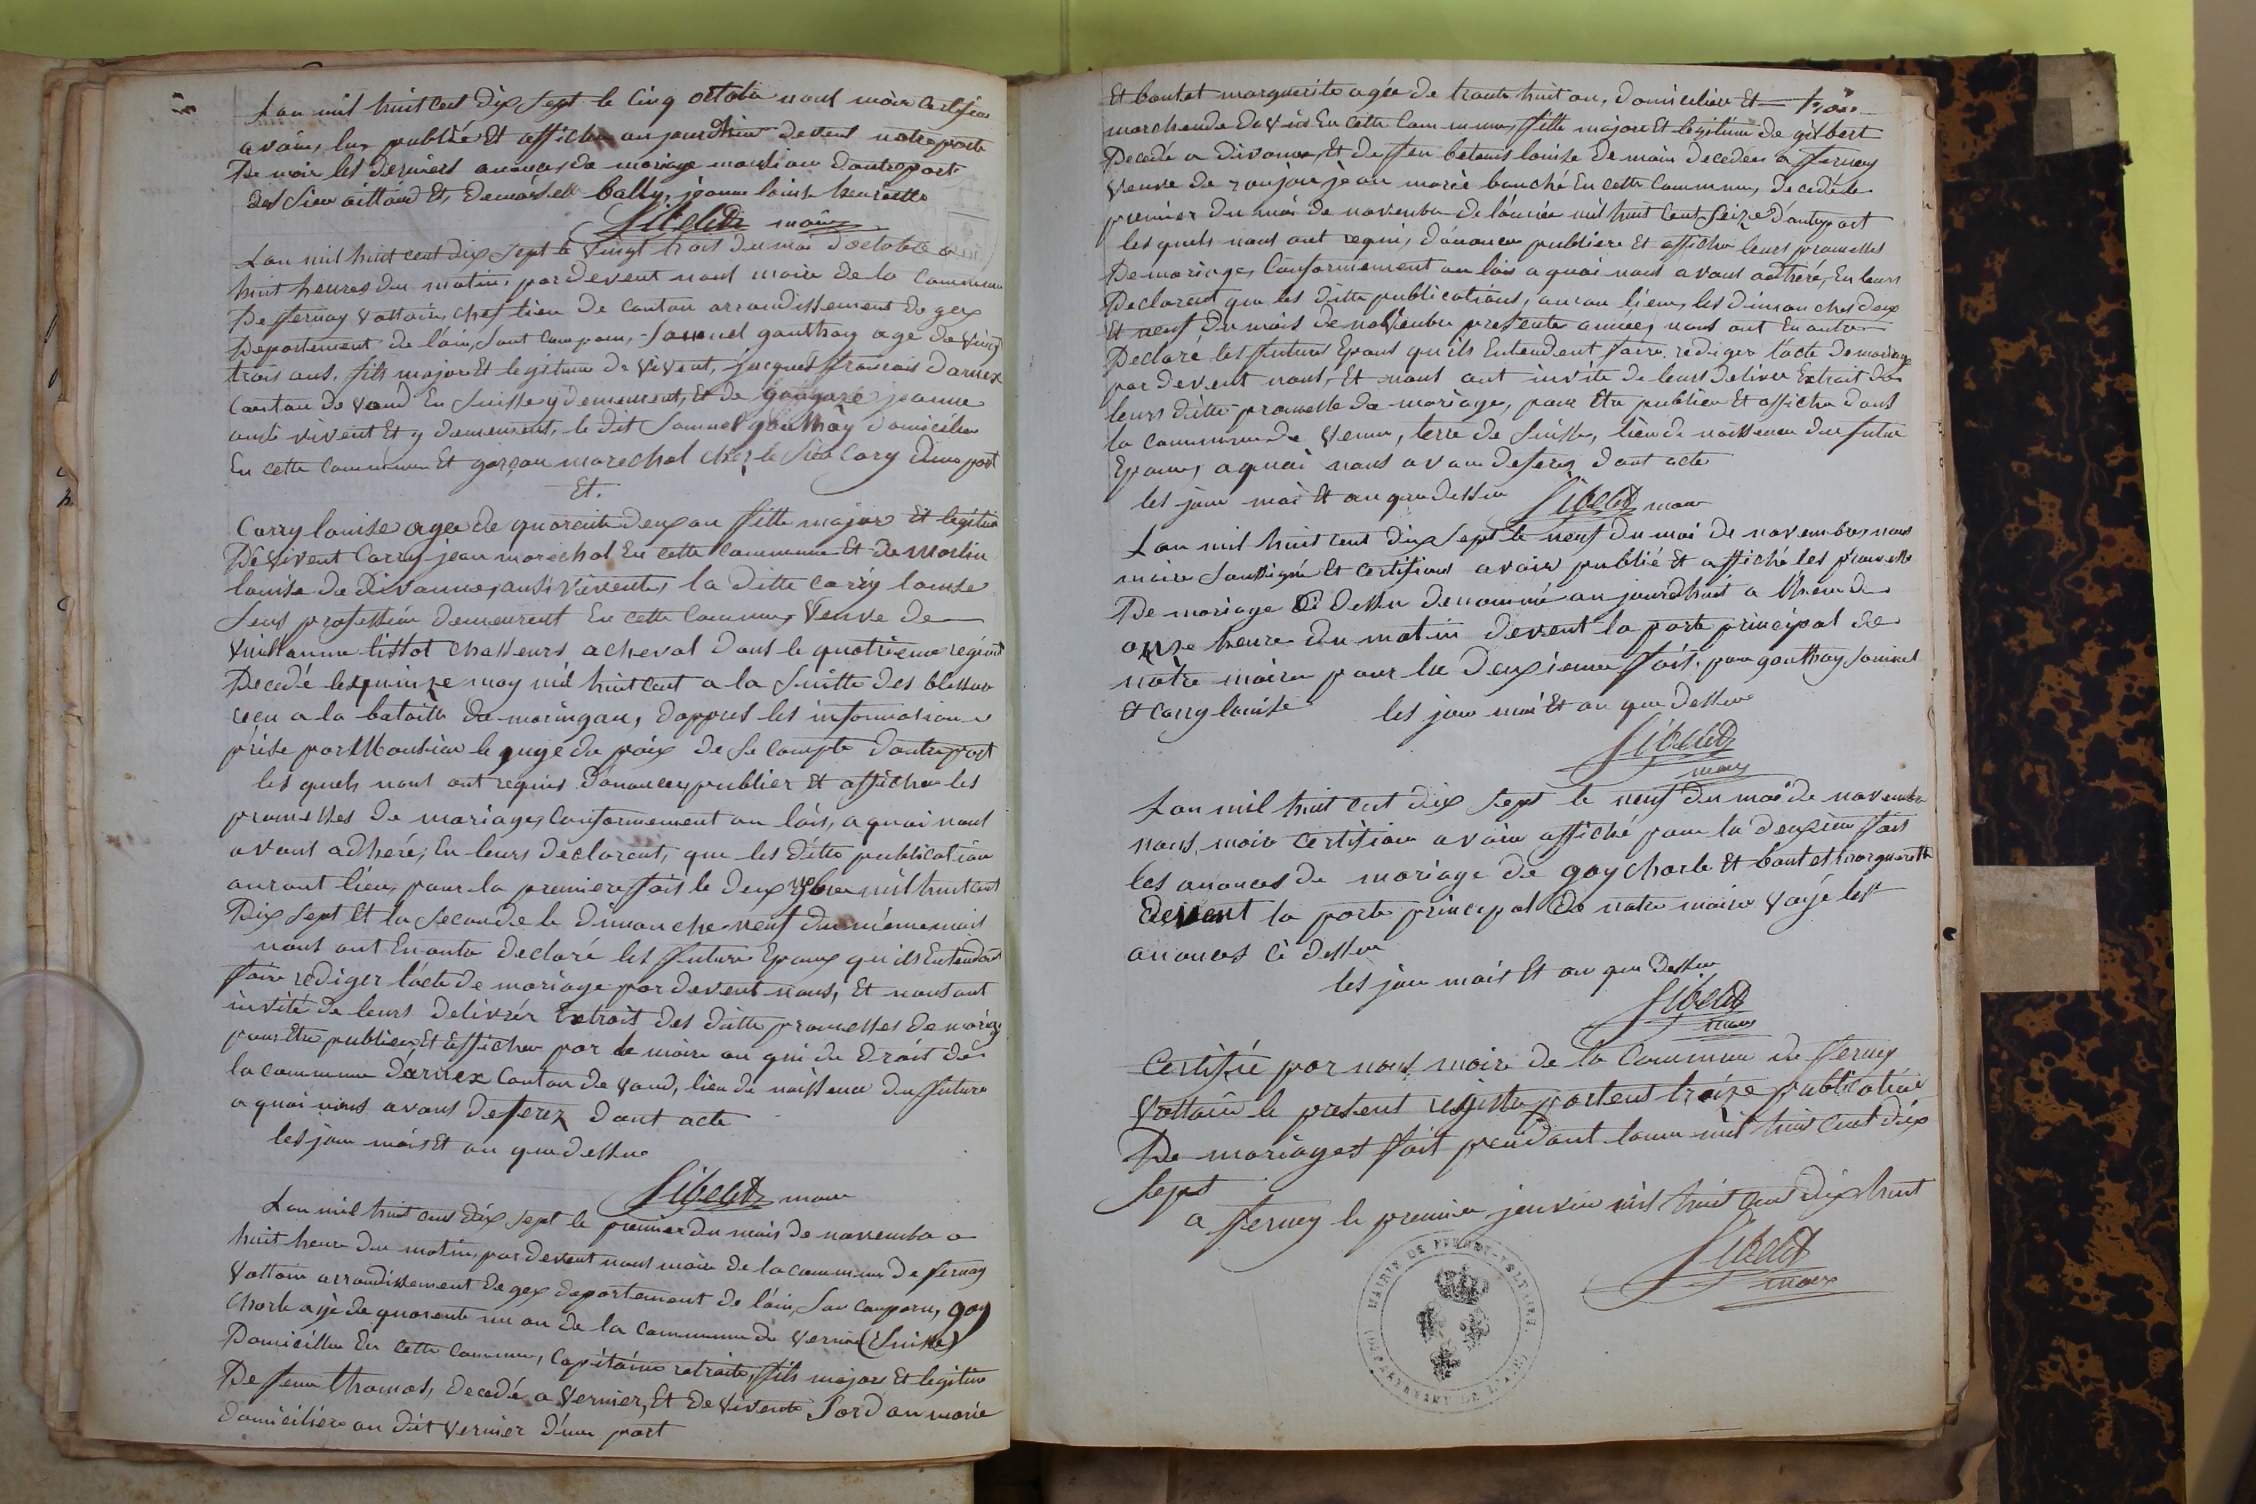 Lan mil huit cent dix sept le cinq octobre nous maire certifions
avoir, lu, publiée Et afficher aujourdhui devent notre porte
De mairi les derniers anonces de mariage mantiané dautre part
des sieur aittaud Et demoiselle bally, jeanne louise henriette
maire
Lan mil huit cent dix sept le vingt trois du moi d'octobre a
huit heures du matin, pardevent nous maire de la commune
De fernay voltaire, chef lieu de canton arrondissement de gex
Departement de l'ain, sont comparu, samuel gauthay age de vingt
trois ans, fils majore Et legitime de vivent, jacques francois d'arnex
canton de vaud En suisse y demeurent, Et de jeanne
aussi vivent Et y demeurent, le dit samuel gauthay domicilie
En cette commune Et garçon marechal chez le sieur Cary d'une part
Et.
Carry louise agee de quarente deux an fille major Et legitime
De vivent Carry jean marechal En cette commune Et de Marlin
louise de Divonne, ausi vivente, la ditte carry louise
sens professïon demeurent En cette commune, veuve de
tissot chasseurs acheval dans le quatrieme regiment
Decedé le quinze may mil huit cent a la suitte des blessur
recu a la bataille de maringau, dappres les information
prise par Monsieur le juge de paix de se compte dautre part
les quels nous ont requis d'anoncer, publier Et afficher les
promesses de mariage, Conformement au lois, a quoi nous
avons adheré, En leurs declarent, que les ditte publication
auront lieu, pour la premiere fois le deux 9bre mil huit cent
Dix sept Et la seconde le dimanche neuf du même mois
nous ont En outre declaré les future Epoux qu'ils Entendent
faire rediger l'acte de mariage par devent nous, Et nous ont
invité de leurs delivrér Extrait des ditte promesses de mariage
pour Etre publier Et afficher par le maire ou qui de droit de
la commune d'arnex Canton de vaud, lieu de naissence du future
a quoi nous avons deferez dont acte
les jour mois Et an que dessus
maire
Lan mil huit cent dix sept le premier du mois de novembre a
huit heure du matin, par devent nous maire de la commune de fernay
voltaire arrondissement de gex departement de l'ain, son comparu, gay
Charle agé de quarente un an de la commune de vernier (suisse)
Domicillie En cette commune, Capitaine retraite, fils major Et legitime
De feu thomas, decedé a vernier, Et de vivente Jordan marie
domicilière au dit vernier d'une part
Et boutet marguerite agée de trente huit an, domiciliere Et
marchende En cette commune, fille majore Et legitime de gilbert
Decedé a divonne, Et de feu louise Demain decedee a fernay
veuve de jean marie bouché En cette commune, decedé le
premier du moi de novembre de l'année mil huit cent seize d'autre part
les quels nous ont requis, d'anoncer publiere Et afficher leurs promesses
De mariage, Conformement au lois a quoi nous avons adheré, En leurs
Declarent que les ditte publications, auron lieu, les dimanches deux
Et neuf du mois de novembre presente année, nous ont En outre
Declaré les futures Epous qu'ils Entendent faire rediger l'acte de mariage
par devent nous, Et nous ont invité de leurs deliver Extrait des
leurs ditte promesse de mariage, pour Etre publier Et afficher dans
la commune de vernier, terre de suisse, lieu de naissence du futur
Epoux, a quoi nous avon deferez dont acte
les jour moi Et an que dessus maire
Lan mil huit cent dix sept le neuf du moi de novembre, nous
maire soussigné Et certifions avoir publié Et affiché les promesse
De mariage ci dessu denommé aujourdhuit a l'heure de
onze heure du matin devent la porte principal de
notre mairie pour la deuxieme fois, pour gauthay samuel
Et carry louise les jour moi Et an que dessu
maire
Lan mil huit cent dix sept le neuf du moi de novembre
nous maire certifion avoir affiché pour la deuxieme fois
les anonces de mariage de gay charle Et boutet marguerite
devent la porte principal de notre mairie voyé les
anonces ci dessu
les jour mois Et an que dessu
maire
Certifié par nous maire de la commune de ferney
voltaire le present registre portent treize publication
De mariages fait pendant lanné mil huit cent dix
sept
a ferney le premier jenvier mil huit cent dix huit
maire
MAIRIE DE FERNEY-VOLTAIRE.
(DÉPARTEMENT DE L'AIN)